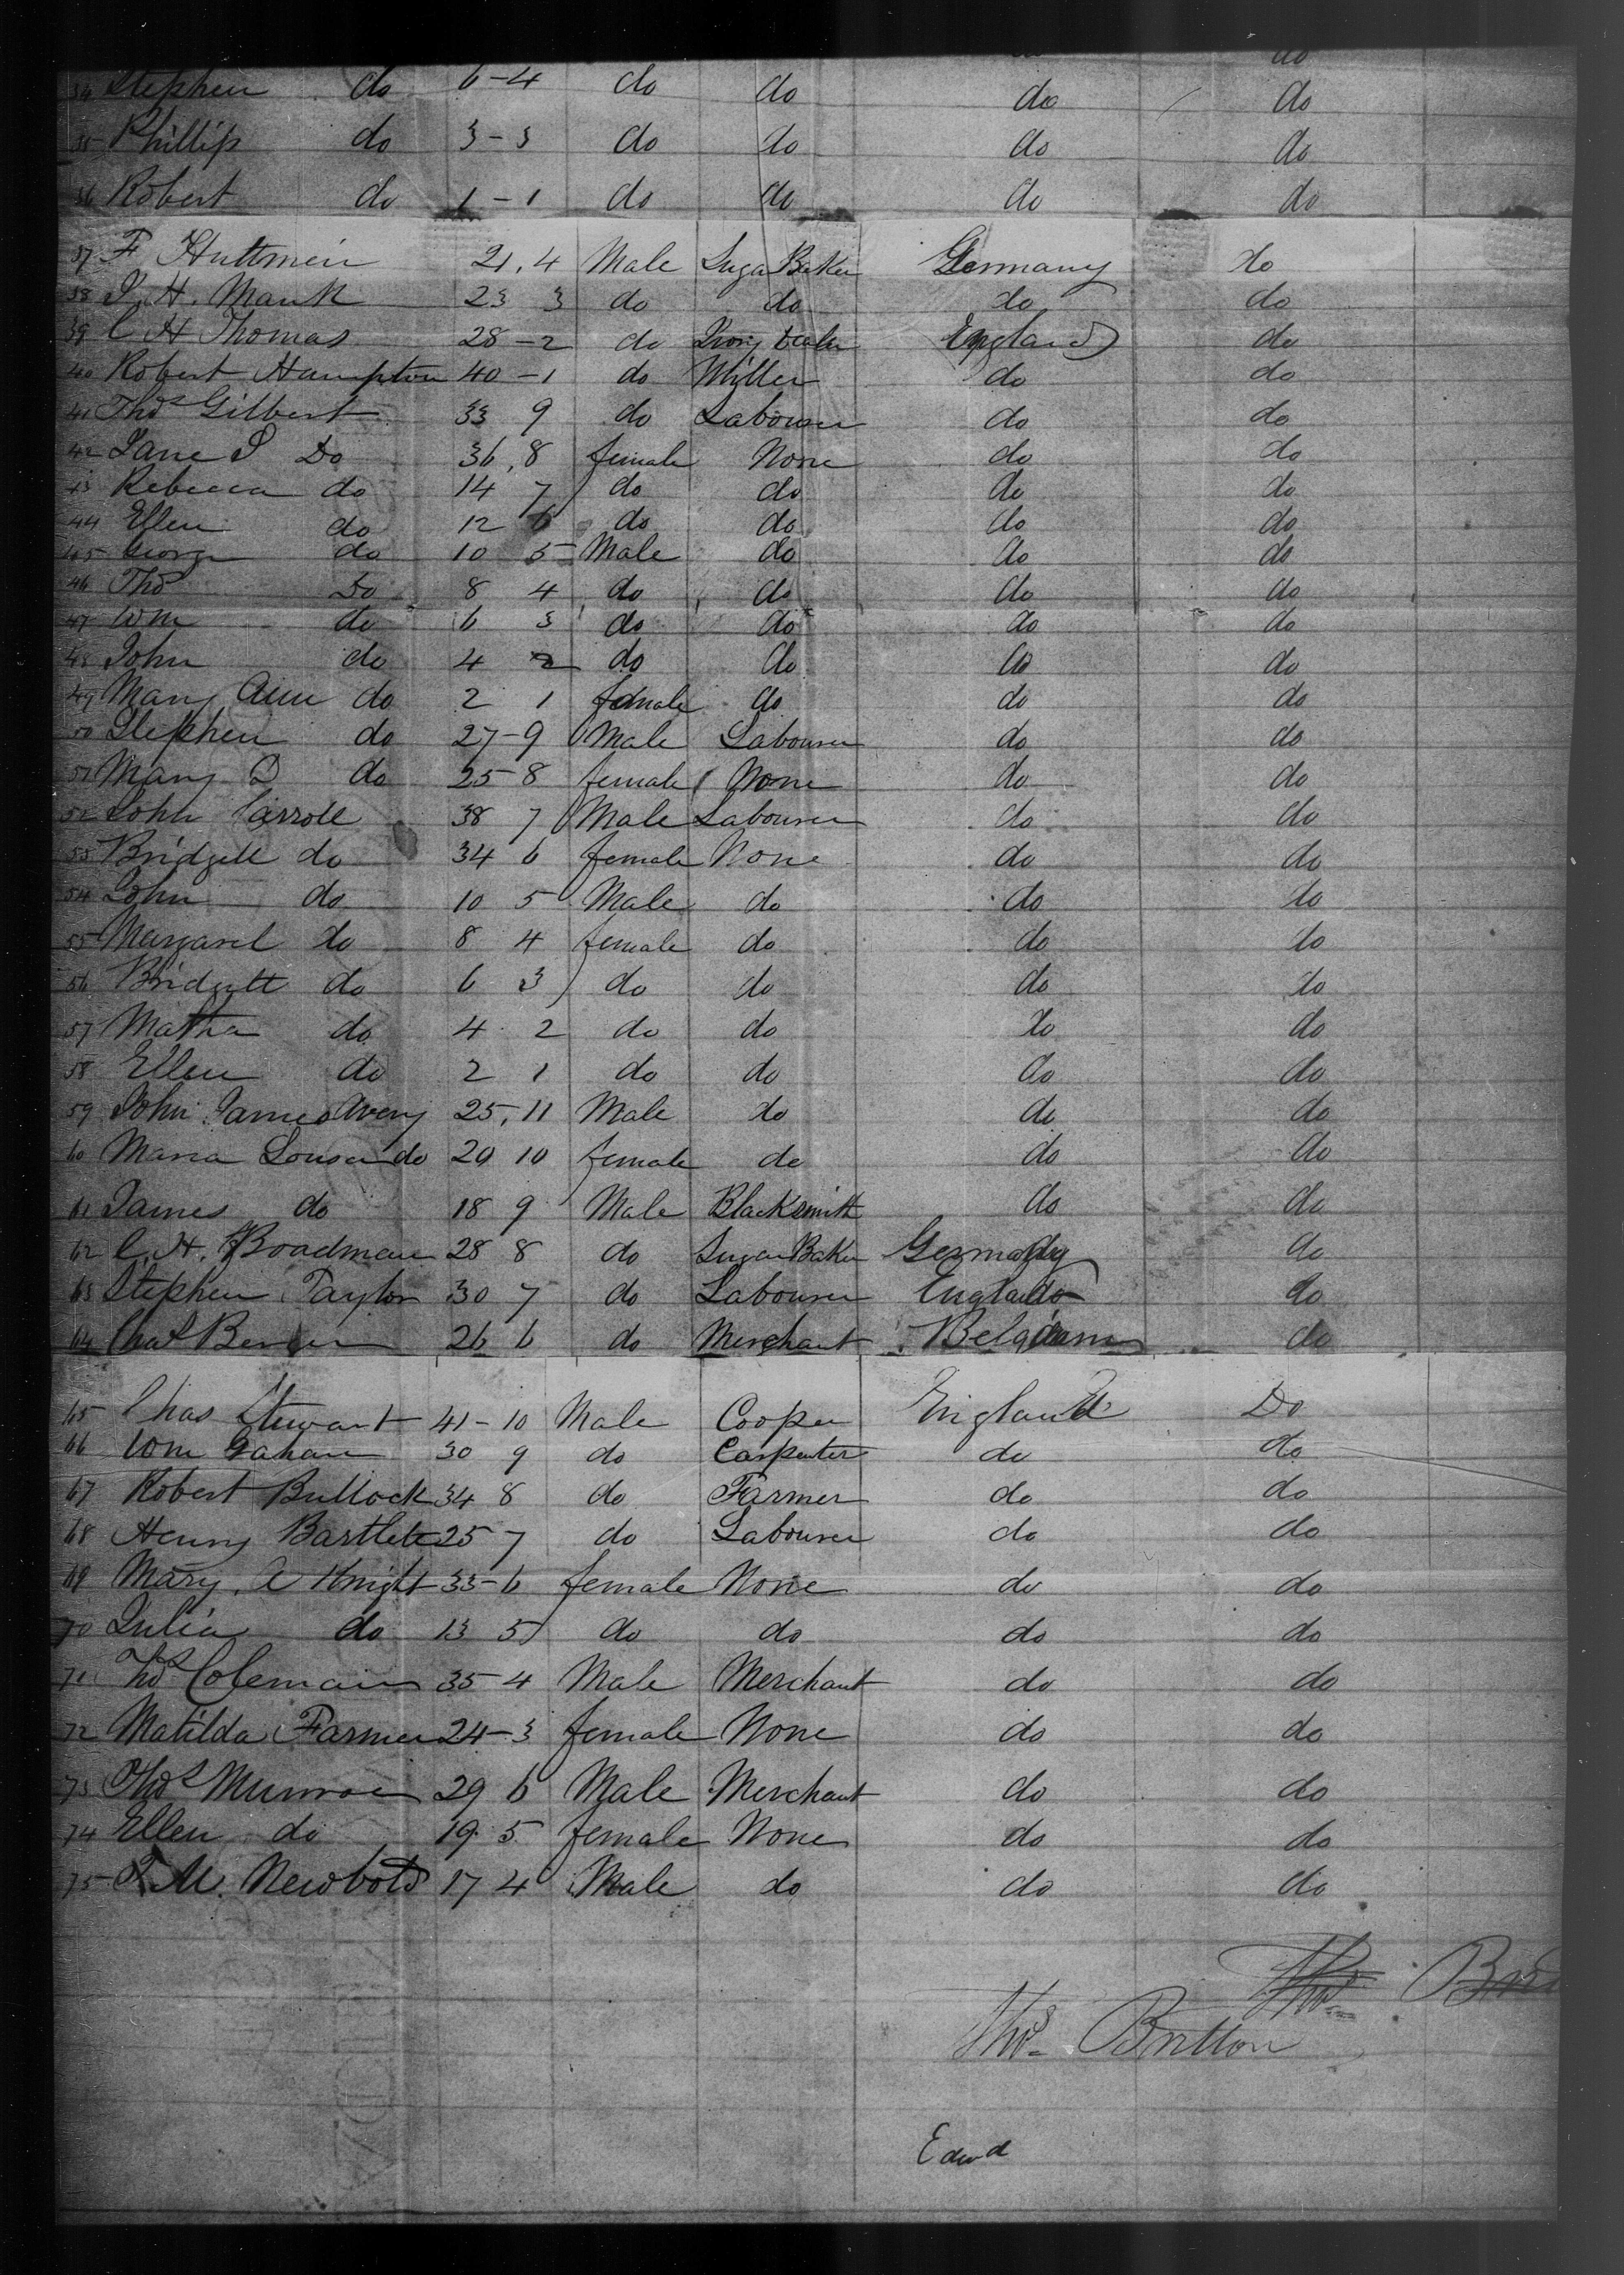 do
34 Stephen do 6-4 do do do do
35 Phillip do 3-3 do do do do
36 Robert do 1-1 do do do do
37 F Huttmein 21,4 Male Suga Baker Germany do
38 J. H. Mank 23 3 do do do do
39 C H Thomas 28-2 do England do
40 Robert Hampton 40-1 do Miller do do
41 Thos Gilbert 33 9 do Labourer do do
42 Jane S Do 36,8 female None do do
43 Rebecca do 14 7 do do do do
44 Ellen do 12 6 do do do do
45 George do 10 5 Male do do do
46 Thos Do 8 4 do do do do
47 Wm do 6 3 do do do do
48 John do 4 2 do do do do
49 Mary Ann do 2 1 female do do do
50 Stephen do 27-9 Male Labourer do do
51 Mary D do 25-8 female None do do
52 John Carroll 38 7 Male Labourer do do
53 Bridgett do 34 6 female None do do
54 John do 10 5 Male do do do
55 Margaret do 8 4 female do do do
56 Bridgett do 6 3 do do do do
57 Matha do 4 2 do do do do
58 Ellen do 2 1 do do do do
59 John James Avery 25,11 Male do do do
60 Maria Lousa do 20 10 female do do do
61 James do 18 9 Male Blacksmith do do
62 C. H. Boadman 28 8 do Sugar Baker Germany do
63 Stephen Taylor 30 7 do Labourer England do
64 Chas 26 6 do Merchant Belgium do
65 Chas Stewart 41-10 Male Cooper England Do
66 Wm Gahan 30 9 do Carpenter do do
67 Robert Bullock 34 8 do Farmer do do
68 Henry Bartlett 25 7 do Labourer do do
69 Mary A Knight 33-6 female None do do
70 Julia do 13 5 do do do do
71 Thos Colemain 35-4 Male Merchant do do
72 Matilda Farmer 24-3 female None do do
73 Thos Munroe 29 6 Male Merchant do do
74 Ellen do 19 5 female None do do
75 T. M. Newbold 17 4 Male do do do
Thos
Thos Britton
Edwd